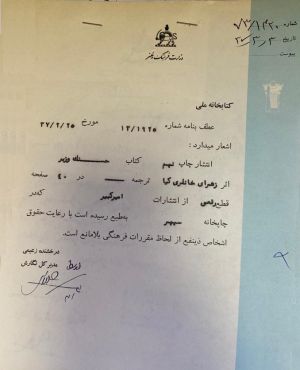 شماره ۷۳/۸۴۲۰
تاریخ ۳۷/۳/۳
پیوست
وزارت فرهنگ و هنر
کتابخانه ملی
عطف بنامه شماره ۱۳/۱۹۲۵ مورخ ۳۷/۲/۲۵
اشعار میدارد:
انتشار چاپ نهم کتاب حسنك وزیر
اثر زهرای خانلری کیا ترجمه — در ۴۰ صفحه
قطع رقعی از انتشارات امیرکبیر که در
چاپخانه سپهر به‌طبع رسیده است با رعایت حقوق
اشخاص ذینفع از لحاظ مقررات فرهنگی بلامانع است.
درخشنده زعیمی
مدیر کل نگارش